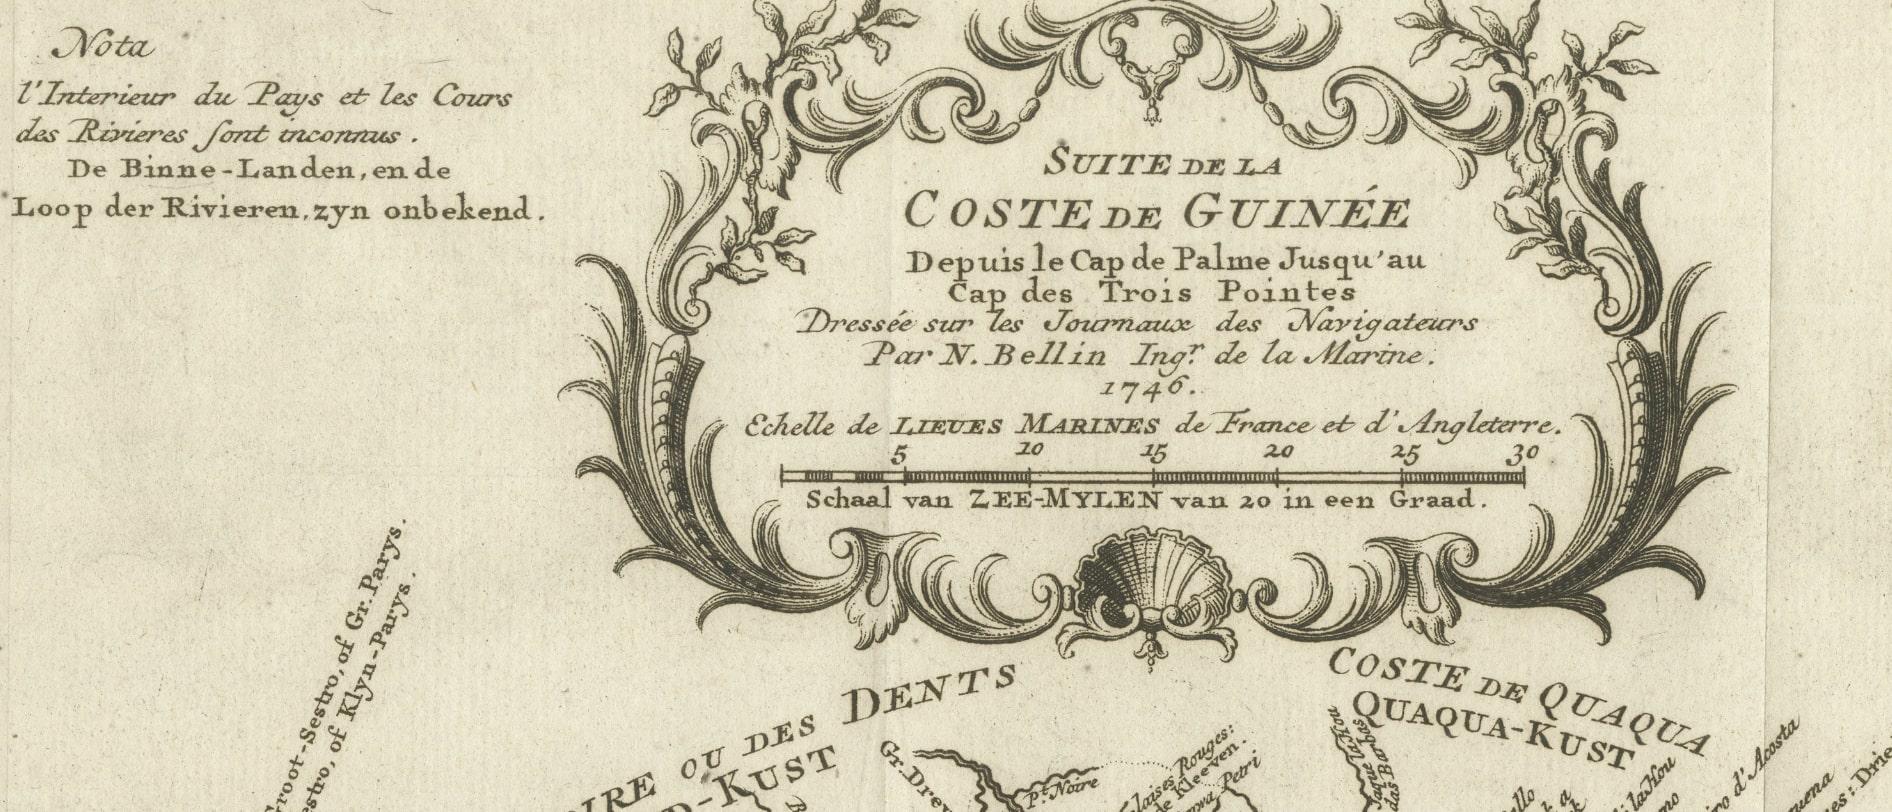 Nota
l'Interieur du Pays et les Cours
des Rivieres sont inconnus.
De Binne-Landen, en de
Loop der Rivieren, zyn onbekend.
SUITE DE LA
COSTE DE GUINÉE
Depuis le Cap de Palme Jusqu'au
Cap des Trois Pointes
Dressée sur les Journaux des Navigateurs
Par N. Bellin Ingr. de la Marine.
1746.
Echelle de LIEUES MARINES de France et d'Angleterre.
5 10 15 20 25 30
Schaal van ZEE-MYLEN van 20 in een Graad.
Groot-Sestro, of Gr. Parys.
of Klyn-Parys.
OU DES DENTS
KUST
COSTE DE QUAQUA
QUAQUA-KUST
Pt. Noire
Rouges:
de Kleeven.
Petri
la Hou
das Barbas
la Hou
d'Acosta